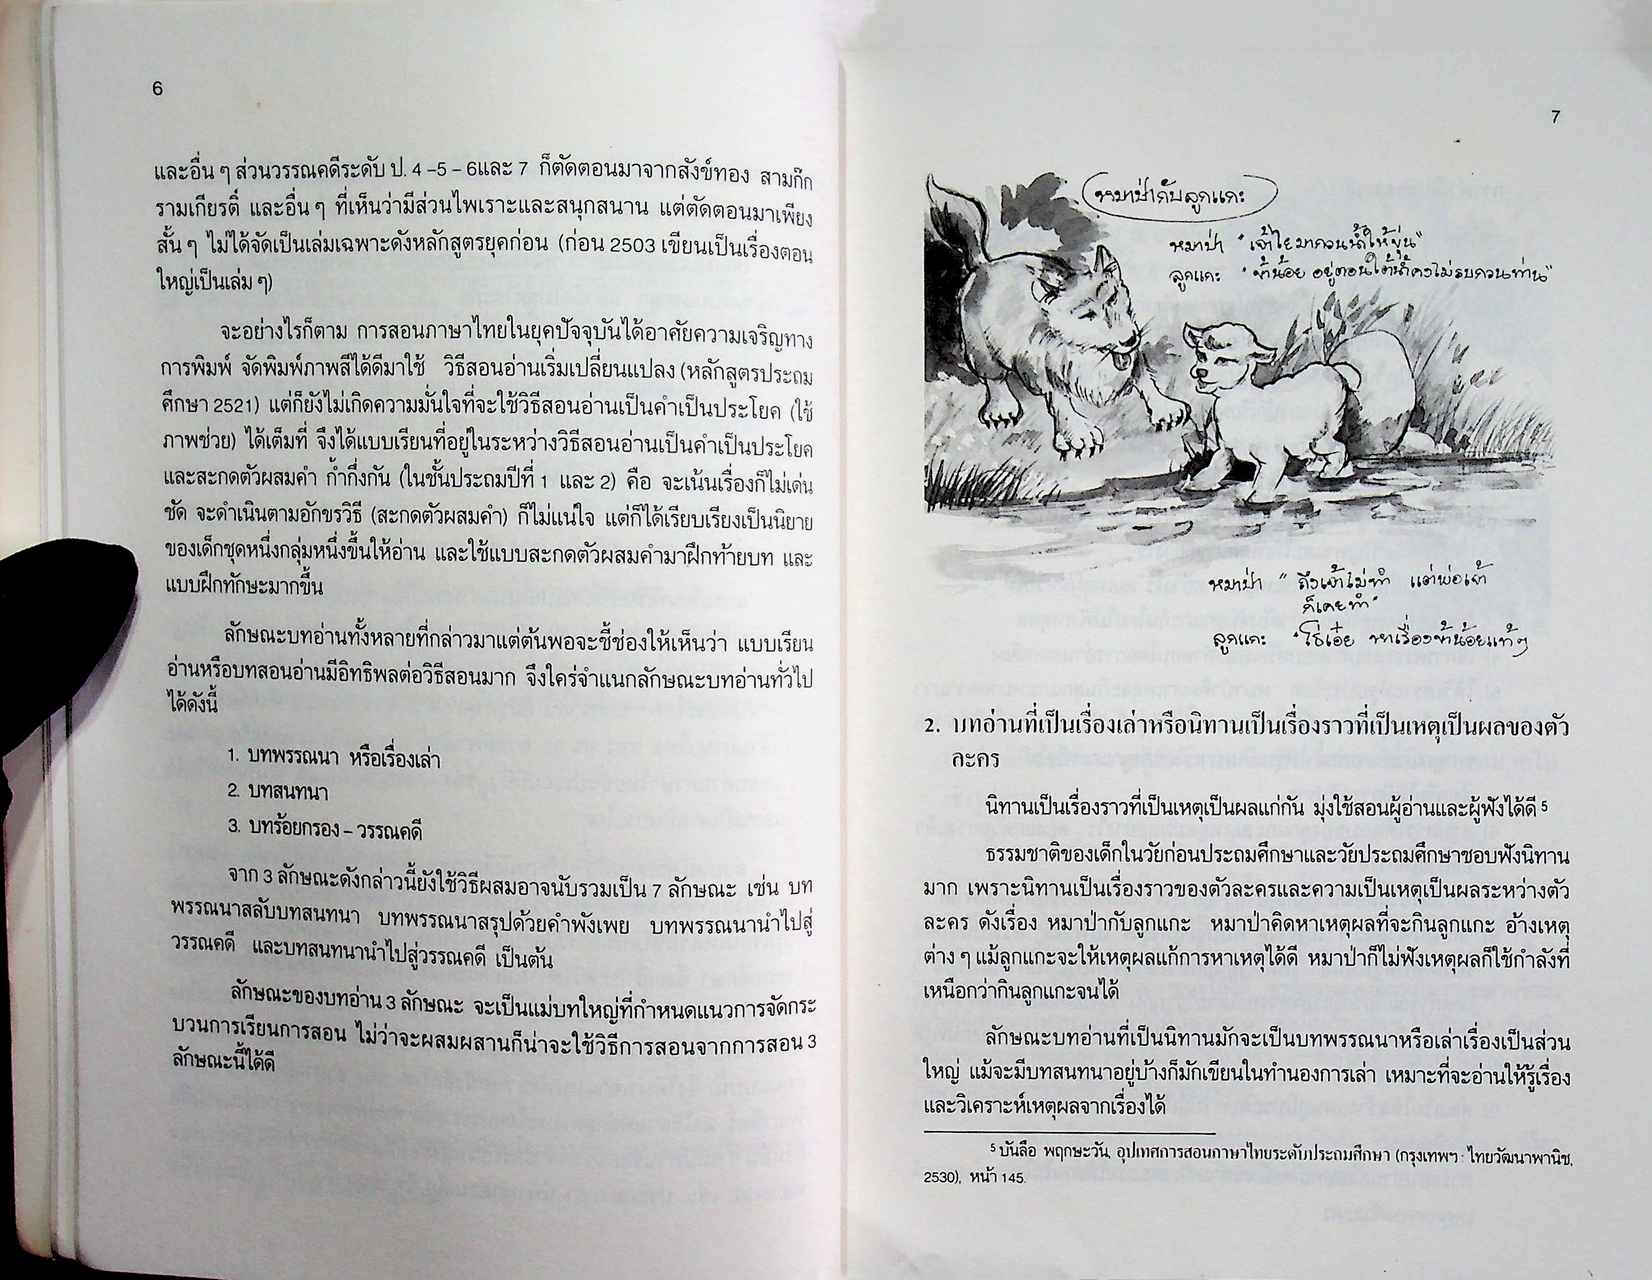 6
และอื่น ๆ ส่วนวรรณคดีระดับ ป. 4 –5 – 6และ 7 ก็ตัดตอนมาจากสังข์ทอง สามก๊ก
รามเกียรติ์ และอื่น ๆ ที่เห็นว่ามีส่วนไพเราะและสนุกสนาน แต่ตัดตอนมาเพียง
สั้น ๆ ไม่ได้จัดเป็นเล่มเฉพาะดังหลักสูตรยุคก่อน (ก่อน 2503 เขียนเป็นเรื่องตอน
ใหญ่เป็นเล่ม ๆ)
จะอย่างไรก็ตาม การสอนภาษาไทยในยุคปัจจุบันได้อาศัยความเจริญทาง
การพิมพ์ จัดพิมพ์ภาพสีได้ดีมาใช้ วิธีสอนอ่านเริ่มเปลี่ยนแปลง (หลักสูตรประถม
ศึกษา 2521) แต่ก็ยังไม่เกิดความมั่นใจที่จะใช้วิธีสอนอ่านเป็นคำเป็นประโยค (ใช้
ภาพช่วย) ได้เต็มที่ จึงได้แบบเรียนที่อยู่ในระหว่างวิธีสอนอ่านเป็นคำเป็นประโยค
และสะกดตัวผสมคำ ก้ำกึ่งกัน (ในชั้นประถมปีที่ 1 และ 2) คือ จะเน้นเรื่องก็ไม่เด่น
ชัด จะดำเนินตามอักขรวิธี (สะกดตัวผสมคำ) ก็ไม่แน่ใจ แต่ก็ได้เรียบเรียงเป็นนิยาย
ของเด็กชุดหนึ่งกลุ่มหนึ่งขึ้นให้อ่าน และใช้แบบสะกดตัวผสมคำมาฝึกท้ายบท และ
แบบฝึกทักษะมากขึ้น
ลักษณะบทอ่านทั้งหลายที่กล่าวมาแต่ต้นพอจะชี้ช่องให้เห็นว่า แบบเรียน
อ่านหรือบทสอนอ่านมีอิทธิพลต่อวิธีสอนมาก จึงใคร่จำแนกลักษณะบทอ่านทั่วไป
ได้ดังนี้
1. บทพรรณนา หรือเรื่องเล่า
2. บทสนทนา
3. บทร้อยกรอง – วรรณคดี
จาก 3 ลักษณะดังกล่าวนี้ยังใช้วิธีผสมอาจนับรวมเป็น 7 ลักษณะ เช่น บท
พรรณนาสลับบทสนทนา บทพรรณนาสรุปด้วยคำพังเพย บทพรรณนานำไปสู่
วรรณคดี และบทสนทนานำไปสู่วรรณคดี เป็นต้น
ลักษณะของบทอ่าน 3 ลักษณะ จะเป็นแม่บทใหญ่ที่กำหนดแนวการจัดกระ
บวนการเรียนการสอน ไม่ว่าจะผสมผสานก็น่าจะใช้วิธีการสอนจากการสอน 3
ลักษณะนี้ได้ดี
7
หมาป่ากับลูกแกะ
หมาป่า "เจ้าใยมากวนน้ำให้ขุ่น"
ลูกแกะ "ข้าน้อย อยู่ตอนใต้น้ำคงไม่รบกวนท่าน"
หมาป่า "ถึงเจ้าไม่ทำ แต่พ่อเจ้า
ก็เคยทำ"
ลูกแกะ "โธ่เอ๋ย หาเรื่องข้าน้อยแท้ๆ
2. บทอ่านที่เป็นเรื่องเล่าหรือนิทานเป็นเรื่องราวที่เป็นเหตุเป็นผลของตัว
ละคร
นิทานเป็นเรื่องราวที่เป็นเหตุเป็นผลแก่กัน มุ่งใช้สอนผู้อ่านและผู้ฟังได้ดี 5
ธรรมชาติของเด็กในวัยก่อนประถมศึกษาและวัยประถมศึกษาชอบฟังนิทาน
มาก เพราะนิทานเป็นเรื่องราวของตัวละครและความเป็นเหตุเป็นผลระหว่างตัว
ละคร ดังเรื่อง หมาป่ากับลูกแกะ หมาป่าคิดหาเหตุผลที่จะกินลูกแกะ อ้างเหตุ
ต่าง ๆ แม้ลูกแกะจะให้เหตุผลแก้การหาเหตุได้ดี หมาป่าก็ไม่ฟังเหตุผลก็ใช้กำลังที่
เหนือกว่ากินลูกแกะจนได้
ลักษณะบทอ่านที่เป็นนิทานมักจะเป็นบทพรรณนาหรือเล่าเรื่องเป็นส่วน
ใหญ่ แม้จะมีบทสนทนาอยู่บ้างก็มักเขียนในทำนองการเล่า เหมาะที่จะอ่านให้รู้เรื่อง
และวิเคราะห์เหตุผลจากเรื่องได้
5 บันลือ พฤกษะวัน, อุปเทศการสอนภาษาไทยระดับประถมศึกษา (กรุงเทพฯ : ไทยวัฒนาพานิช,
2530), หน้า 145.